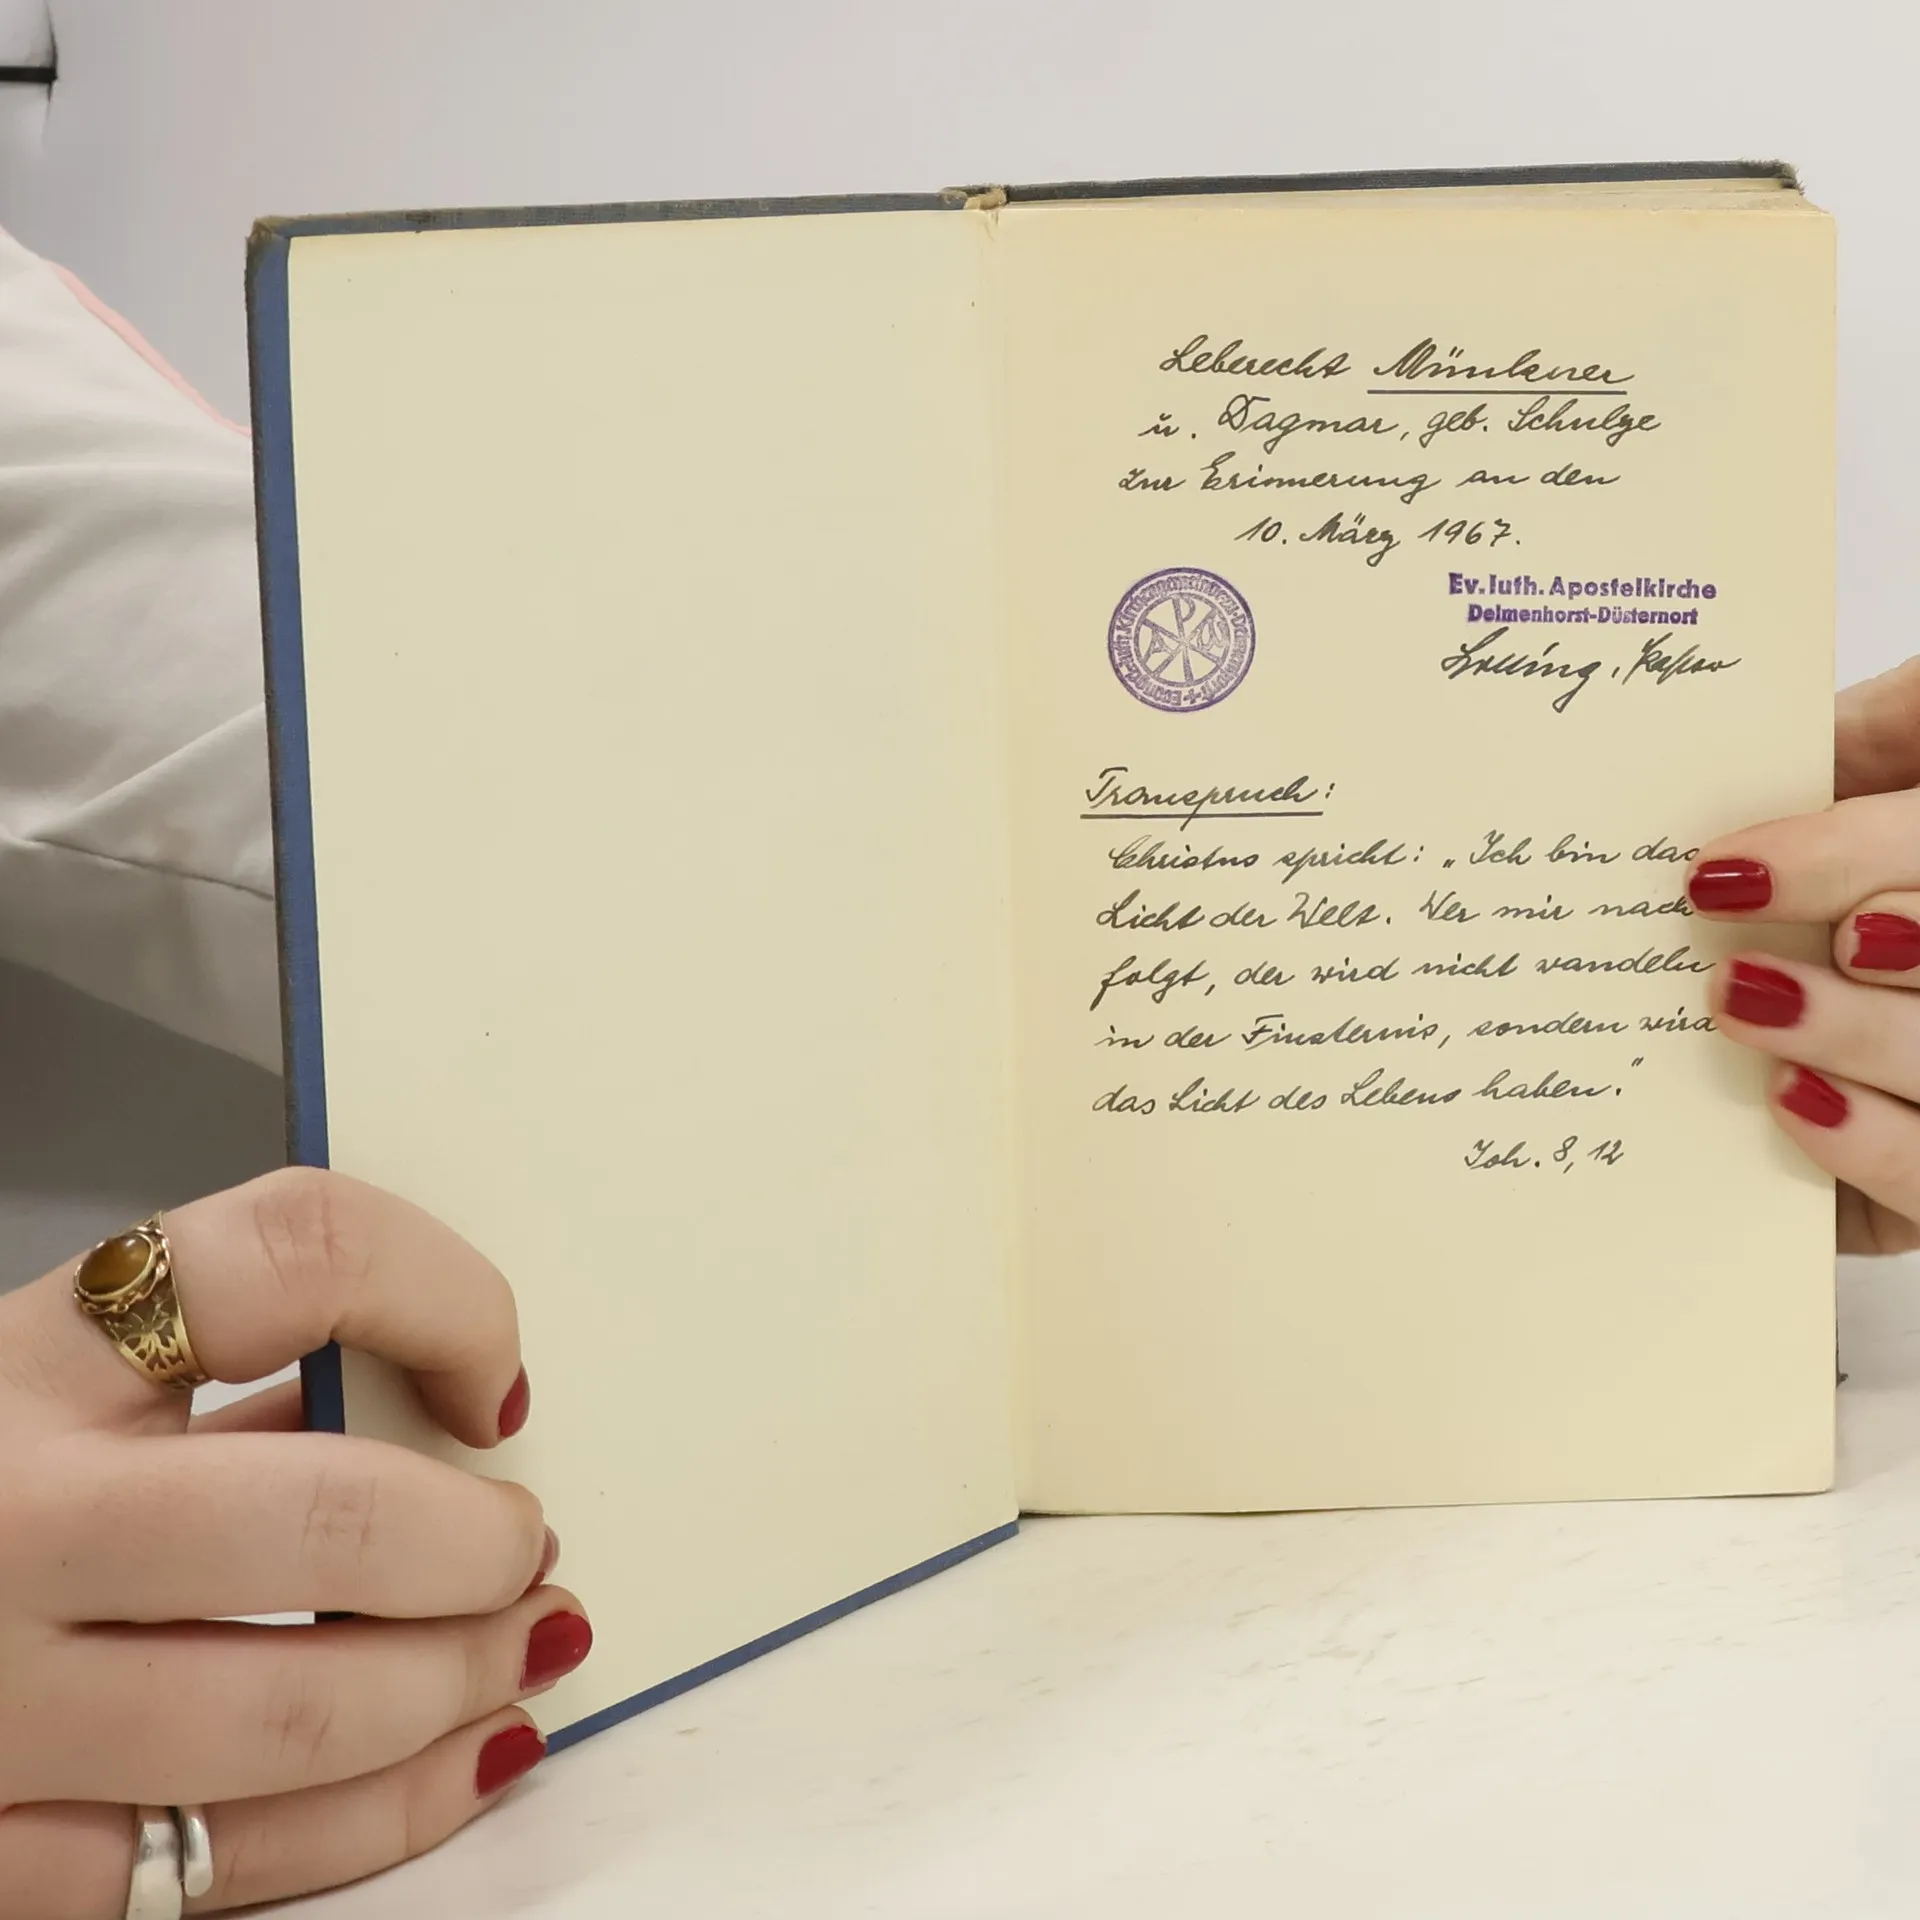 Leberecht Münkner
u. Dagmar, geb. Schulze
zur Erinnerung an den
10. März 1967.
Ev. luth. Apostelkirche
Delmenhorst-Düsternort
Pastor
Trauspruch:
Christus spricht: „Ich bin das
Licht der Welt. Wer mir nach
folgt, der wird nicht wandeln
in der Finsternis, sondern wird
das Licht des Lebens haben."
Joh. 8, 12